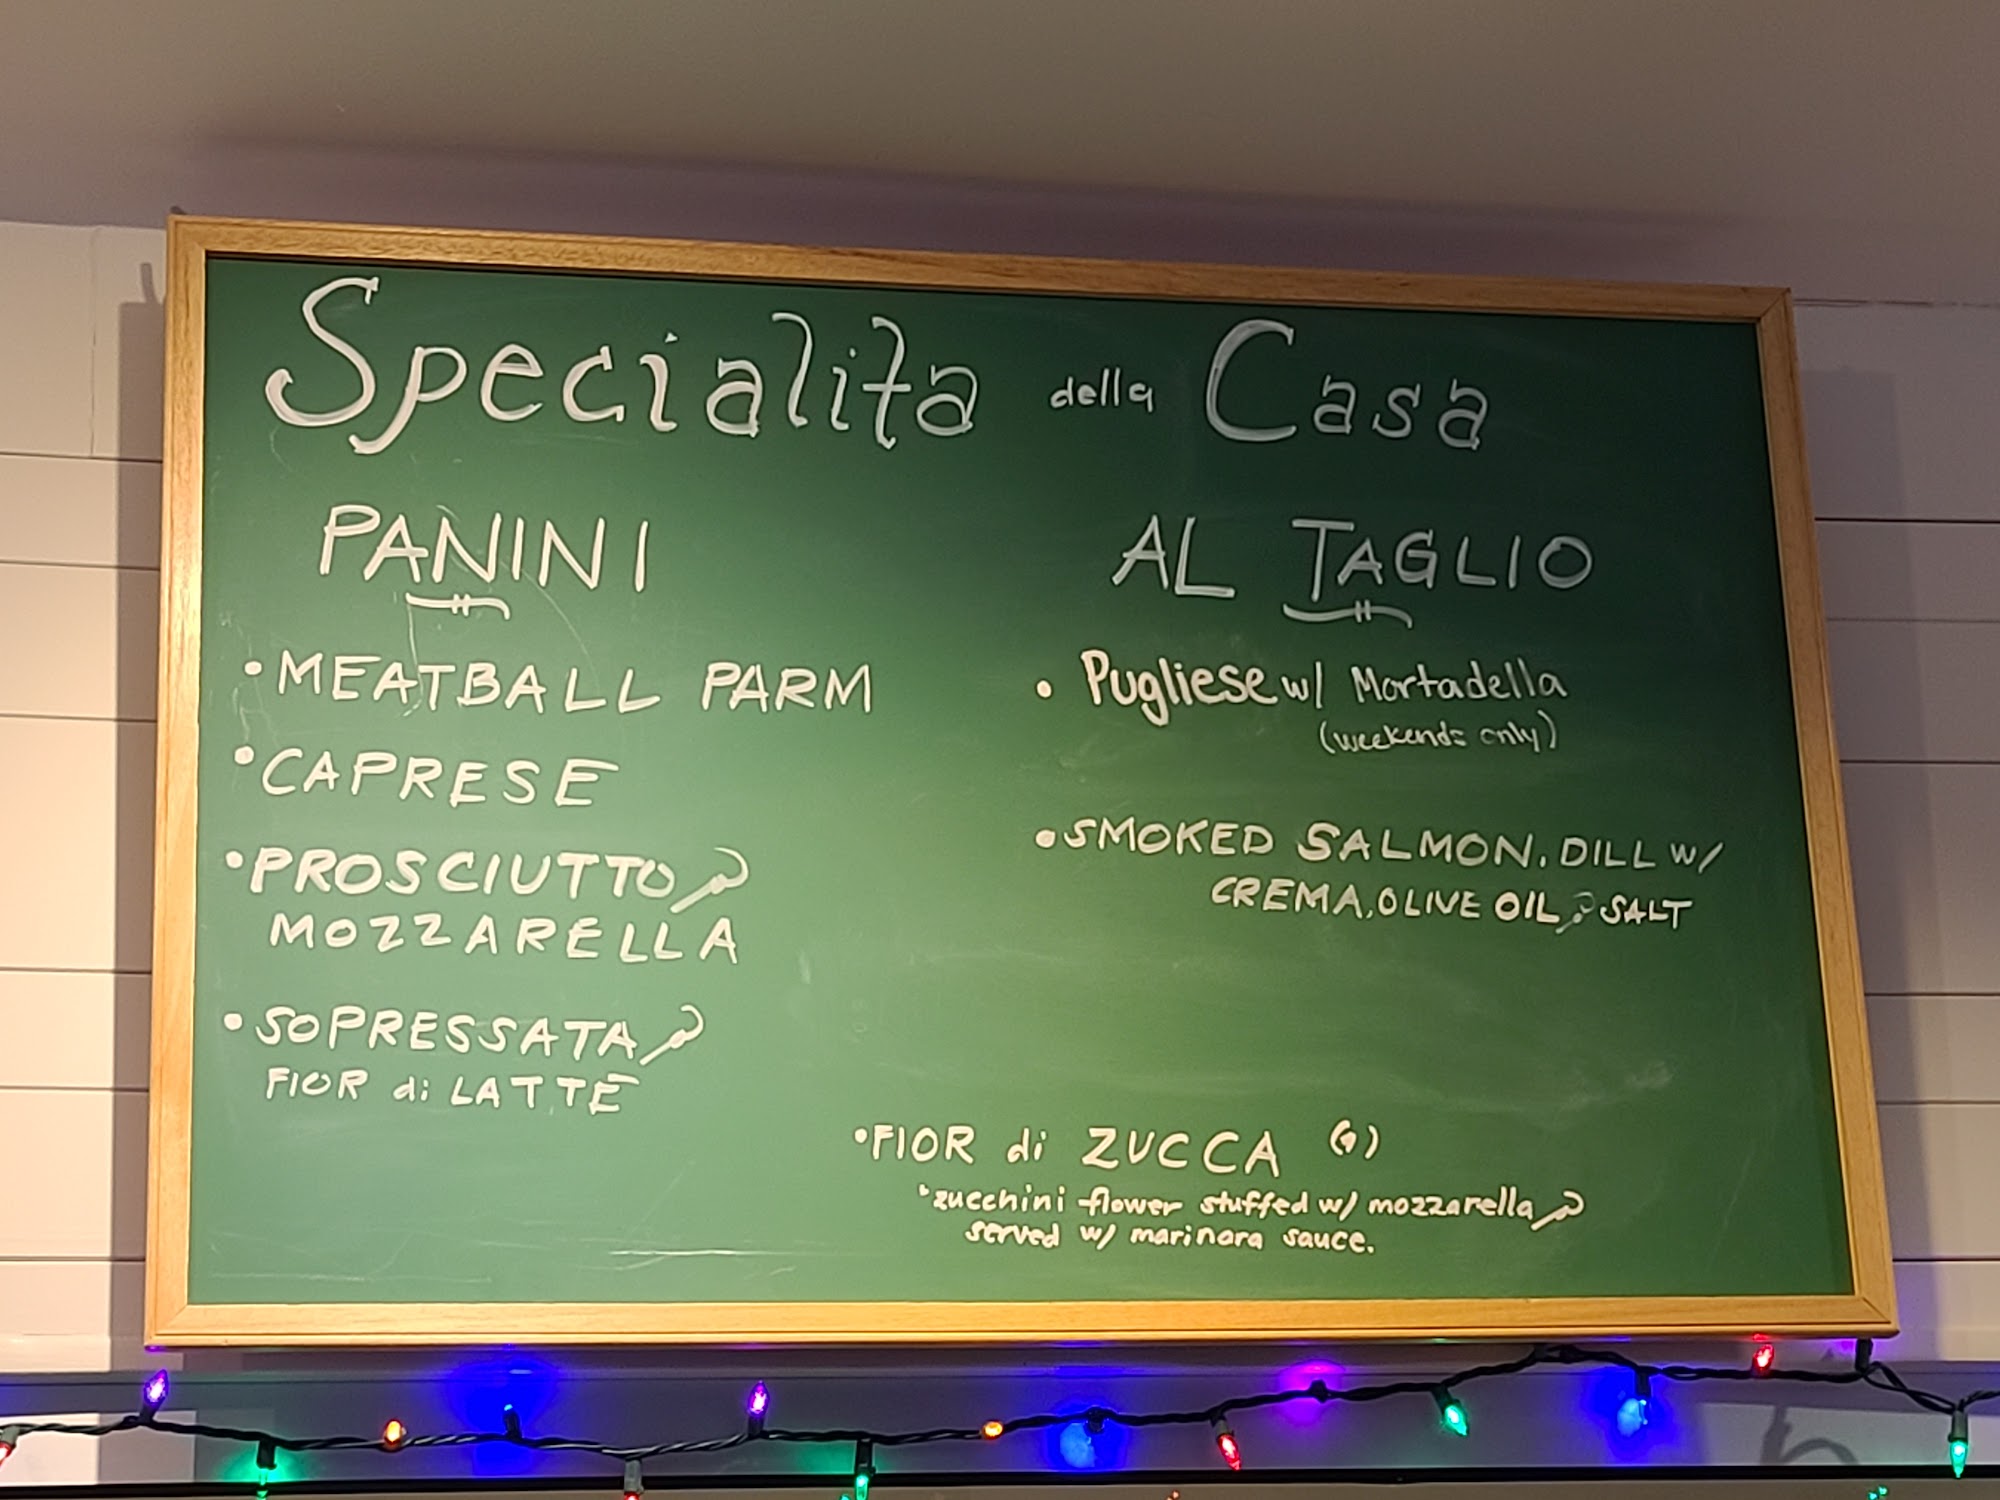 Specialita della Casa
PANINI
• MEATBALL PARM
• CAPRESE
• PROSCIUTTO &
MOZZARELLA
• SOPRESSATA &
FIOR di LATTE
AL TAGLIO
• Pugliese w/ Mortadella
(weekends only)
• SMOKED SALMON, DILL W/
CREMA, OLIVE OIL, & SALT
• FIOR di ZUCCA
zucchini flower stuffed w/ mozzarella &
served w/ marinara sauce.